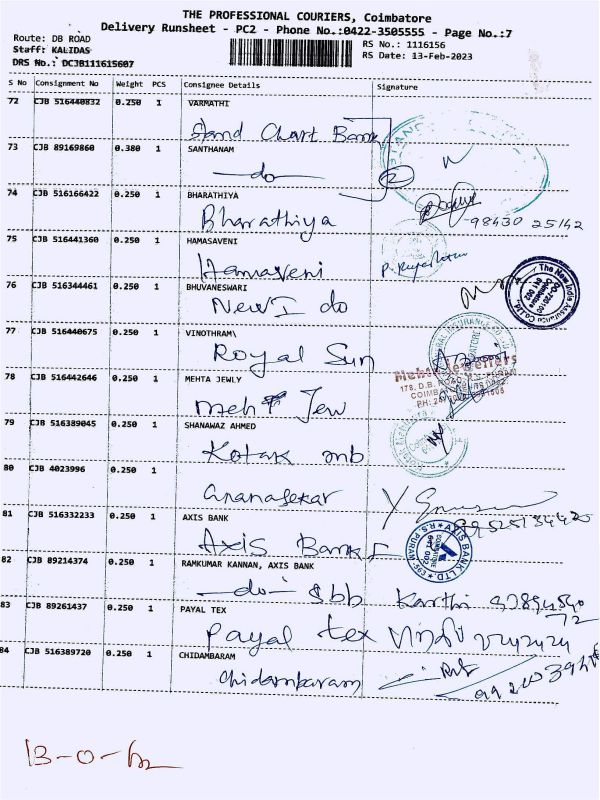 THE PROFESSIONAL COURIERS, Coimbatore
Delivery Runsheet - PC2 - Phone No.:0422-3505555 - Page No.:7
Route: DB ROAD
Staff: KALIDAS
DRS No.: DCJB111615607
RS No.: 1116156
RS Date: 13-Feb-2023
S No Consignment No Weight PCS Consignee Details Signature
72 CJB 516440832 0.250 1 VARMATHI
Stand Chart Bank
73 CJB 89169860 0.380 1 SANTHANAM
-do- 2
74 CJB 516166422 0.250 1 BHARATHIYA
Bharathiya 98430 25142
75 CJB 516441360 0.250 1 HAMASAVENI
Hamsaveni
76 CJB 516344461 0.250 1 BHUVANESWARI
New I do
The New India Assurance Co. Ltd.
77 CJB 516440675 0.250 1 VINOTHRAM\
Royal Sun
78 CJB 516442646 0.250 1 MEHTA JEWLY
Meht Jew
Mehta Jewellers
79 CJB 516389045 0.250 1 SHANAWAZ AHMED
Kotak mb
80 CJB 4023996 0.250 1
Gnanasekar
81 CJB 516332233 0.250 1 AXIS BANK
Axis Bank
AXIS BANK LTD. R.S. PURAM COIMBATORE 641 002
82 CJB 89214374 0.250 1 RAMKUMAR KANNAN, AXIS BANK
-do- Sbb Karthi
83 CJB 89261437 0.250 1 PAYAL TEX
Payal tex
84 CJB 516389720 0.250 1 CHIDAMBARAM
Chidambaram